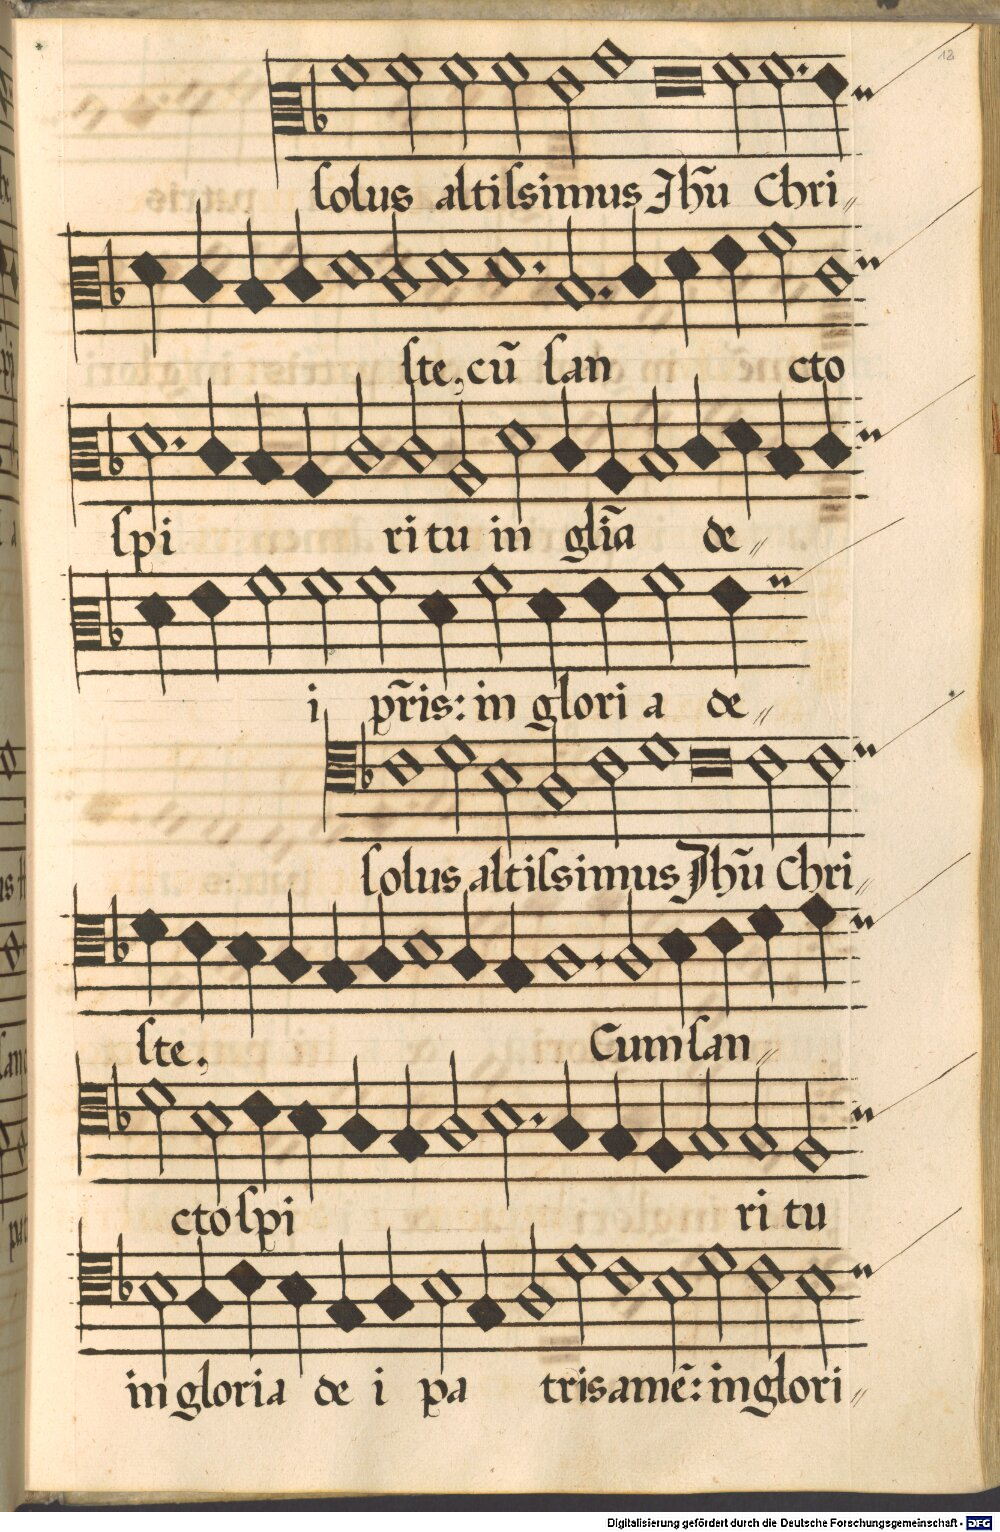 12
solus altissimus Jhū Chri〃
ste, cū san cto
spi ritu in gl̄ia de〃
i pr̄is: in glori a de〃
solus altissimus Jhū Chri〃
ste, Cum san〃
cto spi ritu
in gloria de i pa tris amē: in glori〃
Digitalisierung gefördert durch die Deutsche Forschungsgemeinschaft - DFG